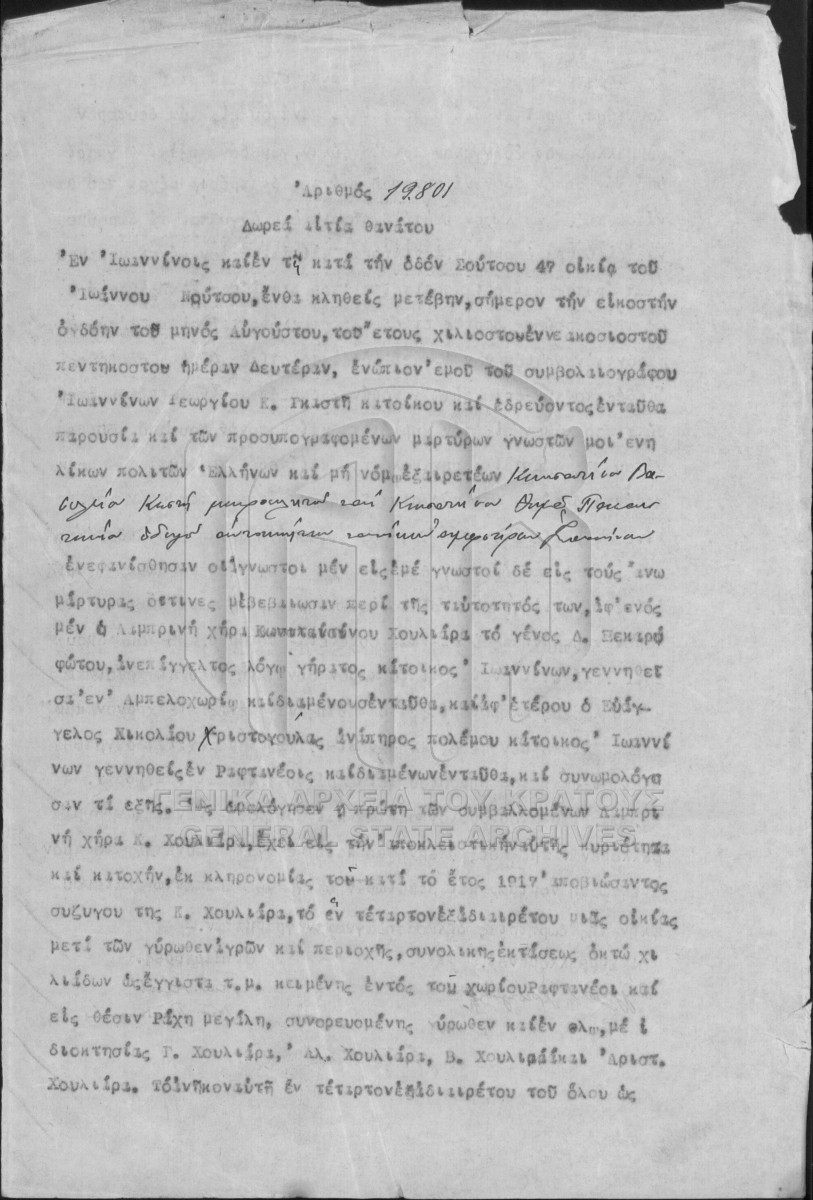 Ἀριθμός 19801
Δωρεά αἰτία θανάτου
Ἐν Ἰωαννίνοις καίἐν τῇ κατά τήν ὁδόν Σούτσου 47 οἰκίᾳ τοῦ
Ἰωάννου Κούτσου, ἔνθα κληθείς μετέβην, σήμερον τήν εἰκοστήν
ὀγδόην τοῦ μηνός Αὐγούστου, τοῦ ἔτους χιλιοστοῦἐννεακοσιοστοῦ
πεντηκοστου ἡμέραν Δευτέραν, ἐνώπιον ἐμοῦ τοῦ συμβολαιογράφου
Ἰωαννίνων Γεωργίου Κ. Γκαστῆ κατοίκου καί ἑδρεύοντος ἐνταῦθα
παρουσία καί τῶν προσυπογραφομένων μαρτύρων γνωστῶν μοι ἐνη
λίκων πολιτῶν Ἑλλήνων καί μή νόμῳ ἐξαιρετέων Κωνσταντίνου Βα-
σιλείου
ἐνεφανίσθησαν οἱἄγνωστοι μέν εἰς ἐμέ γνωστοί δέ εἰς τούς ἄνω
μάρτυρας οἵτινες μἐβεβαίωσαν περί τῆς ταὐτοτητός των, ἀφ' ἑνός
μέν ἡ Λαμπρινή χήρα Κωνσταντίνου Χουλιάρα τό γένος Δ. Ξεκαρφ
φώτου, ἀνεπάγγελτος λόγῳ γήρατος κάτοικος Ἰωαννίνων, γεννηθεῖ
σα ἐν Ἀμπελοχωρίῳ καίδιαμένουσἐνταῦθα, καίἀφ' ἑτέρου ὁ Εὐάγ-
γελος Νικολάου Χριστογούλας ἀνάπηρος πολέμου κάτοικος Ἰωαννί
νων γεννηθείς ἐν Ραφτανέοις καίδιαμένωνἐνταῦθα, καί συνωμολόγη
σαν τά εξῆς. ὡμολόγησεν ἡ πρώτη τῶν συμβαλλομένων Λαμπρι
νή χήρα Κ. Χουλιάρα, ἔχει εἰς τήν ἀποκλειστικήναὐτῆς κυριότητα
καί κατοχήν, ἐκ κληρονομίας τοῦ κατά τό ἔτος 1917 ἀποβιώσαντος
συζυγου της Κ. Χουλιάρα, τό ἕν τέταρτονἐξἀδιαιρέτου μιᾶς οἰκίας
μετά τῶν γύρωθενἀγρῶν καί περιοχῆς, συνολικηςἐκτάσεως ὀκτώ χι
λιάδων ὡςἔγγιστα τ.μ. κειμένης ἐντός τοῦ χωρίουΡαφτανέοι καί
εἰς θέσιν Ράχη μεγάλη, συνορευομένης γύρωθεν καίἐν ὅλῳ, μέ ἰ
διοκτησίας Γ. Χουλιάρα, Ἀλ. Χουλιάρα, Β. Χουλιαράκαι Ἀριστ.
Χουλιάρα. Τόἀνῆκοναὐτῆ ἕν τέταρτονἐξἀδιαιρέτου τοῦ ὅλου ὡς
ΓΕΝΙΚΑ ΑΡΧΕΙΑ ΤΟΥ ΚΡΑΤΟΥΣ
GENERAL STATE ARCHIVES